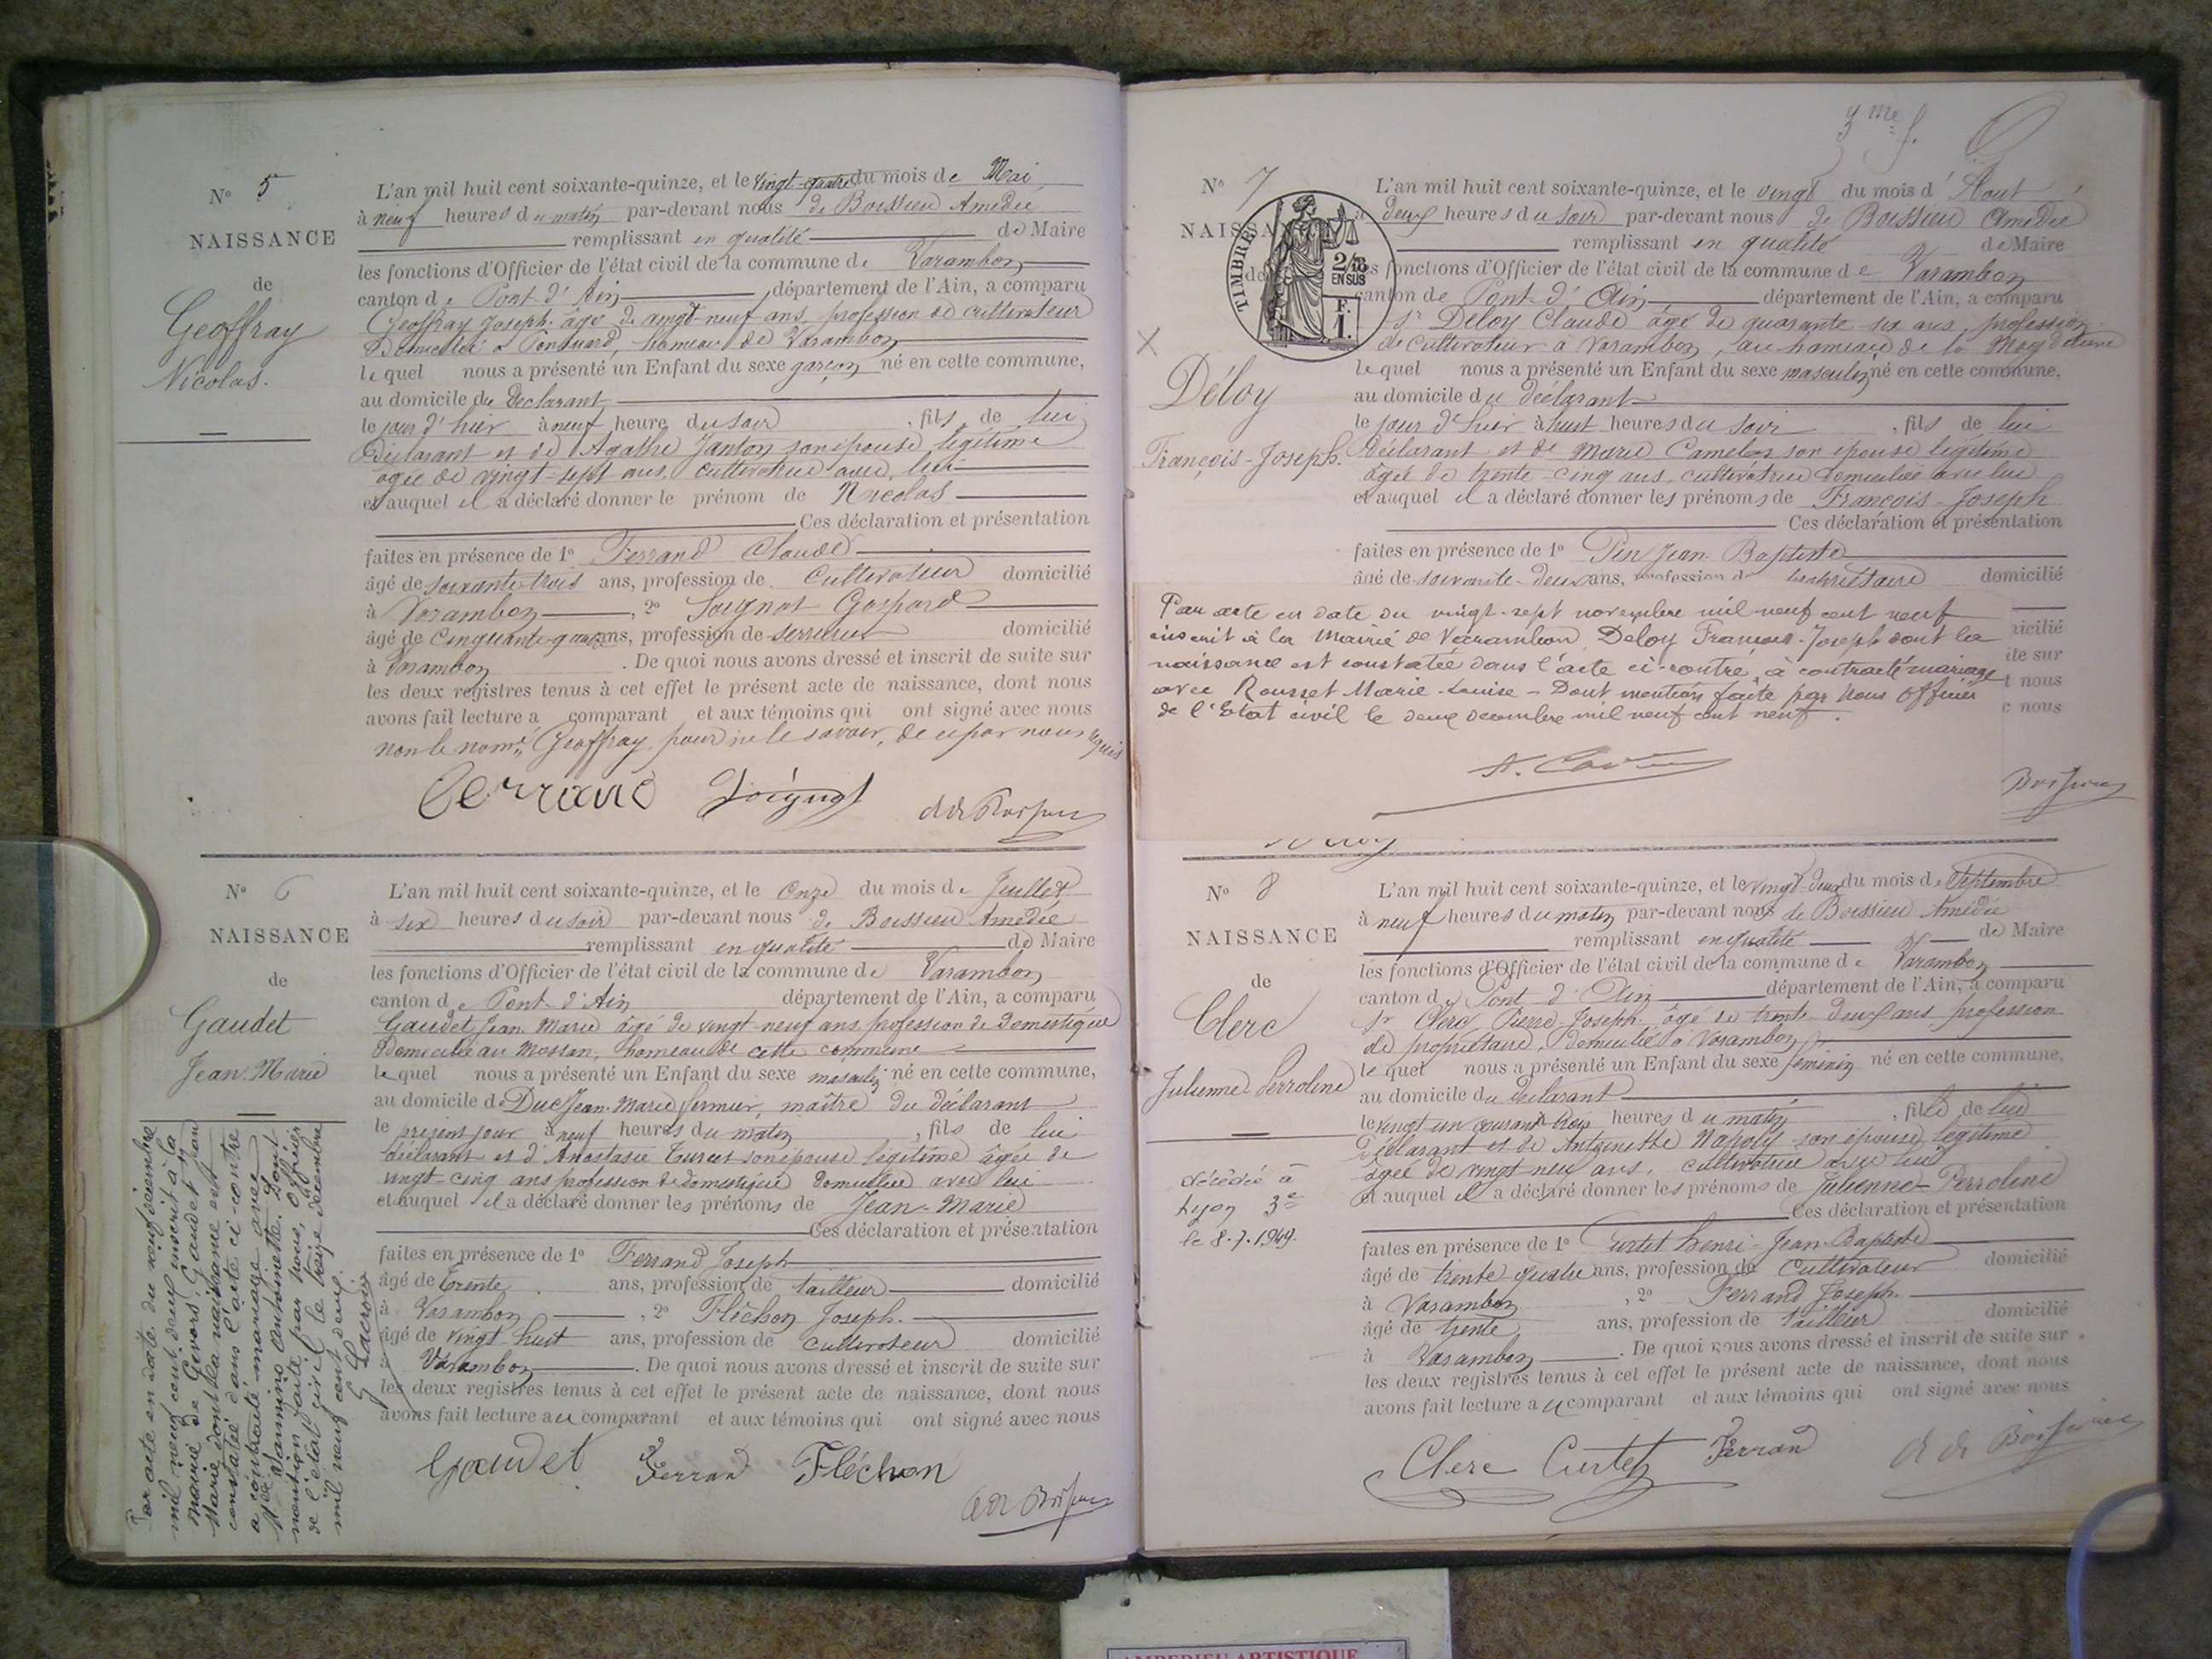 N° 5
NAISSANCE
de
Geoffray
Nicolas.
L'an mil huit cent soixante-quinze, et le vingt-quatre du mois de Mai
à neuf heures du matin par-devant nous de Boissieu Amédée
remplissant en qualité de Maire
les fonctions d'Officier de l'état civil de la commune de Varambon
canton de Pont-d'Ain département de l'Ain, a comparu
Geoffray Joseph âgé de vingt-neuf ans profession de cultivateur
Domicilié à hameau de Varambon
lequel nous a présenté un Enfant du sexe garçon né en cette commune,
au domicile du Déclarant
le jour d'hier à neuf heure du soir, fils de lui
Déclarant et de Agathe Janton son épouse légitime
âgée de vingt-sept ans, cultivatrice avec lui
et auquel il a déclaré donner le prénom de Nicolas
Ces déclaration et présentation
faites en présence de 1° Ferrand Claude
âgé de soixante-trois ans, profession de Cultivateur domicilié
à Varambon, 2° Soignot Gaspard
âgé de Cinquante ans, profession de serrurier domicilié
à Varambon. De quoi nous avons dressé et inscrit de suite sur
les deux registres tenus à cet effet le présent acte de naissance, dont nous
avons fait lecture a comparant et aux témoins qui ont signé avec nous
non le nomé Geoffray, pour ne le savoir, de ce par nous requis
Ferrand Soignot
N° 6
NAISSANCE
de
Gaudet
Jean-Marie
L'an mil huit cent soixante-quinze, et le Onze du mois de Juillet
à six heures du soir par-devant nous de Boissieu Amédée
remplissant en qualité de Maire
les fonctions d'Officier de l'état civil de la commune de Varambon
canton de Pont-d'Ain département de l'Ain, a comparu
Gaudet Jean Marie âgé de vingt-neuf ans profession de Domestique
Domicilié au hameau de cette commune
lequel nous a présenté un Enfant du sexe masculin né en cette commune,
au domicile de Duc Jean-Marie fermier, maître du déclarant
le présent jour à neuf heures du matin, fils de lui
déclarant et d'Anastasie son épouse légitime âgée de
vingt-cinq ans profession de domestique domiciliée avec lui
et auquel il a déclaré donner les prénoms de Jean-Marie
Ces déclaration et présentation
faites en présence de 1° Ferrand Joseph
âgé de trente ans, profession de tailleur domicilié
à Varambon, 2° Fléchon Joseph.
âgé de vingt huit ans, profession de cultivateur domicilié
à Varambon. De quoi nous avons dressé et inscrit de suite sur
les deux registres tenus à cet effet le présent acte de naissance, dont nous
avons fait lecture au comparant et aux témoins qui ont signé avec nous
Gaudet Ferrand Fléchon
Par acte en date du neuf décembre
mil neuf cent deux inscrit à la
mairie de Givors, Gaudet Jean
Marie dont la naissance est
constatée dans l'acte ci-contre
a contracté mariage avec
Antoinette. Dont
mention faite par nous, Officier
de l'état civil le treize décembre
mil neuf cent deux.
Lacroix
3me f.
N° 7
NAISSANCE
de
TIMBRE
2/10
EN SUS
F.
1.
X
Déloy
François-Joseph.
L'an mil huit cent soixante-quinze, et le vingt du mois d'Aout
à deux heures du soir par-devant nous de Boissieu Amédée
remplissant en qualité de Maire
les fonctions d'Officier de l'état civil de la commune de Varambon
canton de Pont-d'Ain département de l'Ain, a comparu
Sr Déloy Claude âgé de quarante-six ans, profession
de cultivateur à Varambon, au hameau de la
lequel nous a présenté un Enfant du sexe masculin né en cette commune,
au domicile du déclarant
le jour d'hier à huit heures du soir, fils de lui
Déclarant et de Marie Camelin son épouse légitime
âgée de trente-cinq ans, cultivatrice domiciliée avec lui
et auquel il a déclaré donner les prénoms de François-Joseph
Ces déclaration et présentation
faites en présence de 1° Pin Jean-Baptiste
âgé de soixante-deux ans, profession de propriétaire domicilié
Par acte en date du vingt-sept novembre mil neuf cent neuf
inscrit à la Mairie de Varambon Deloy François-Joseph dont la
naissance est constatée dans l'acte ci-contre, à contracté mariage
avec Rousset Marie-Louise - Dont mention faite par Nous Officier
de l'Etat civil le deux décembre mil neuf cent neuf.
icilié
ite sur
t nous
c nous
N° 8
NAISSANCE
de
Clerc
Julienne-Perroline
décédée à
Lyon 3e
le 8.7.1949.
L'an mil huit cent soixante-quinze, et le vingt-deux du mois de Septembre
à neuf heures du matin par-devant nous de Boissieu Amédée
remplissant en qualité de Maire
les fonctions d'Officier de l'état civil de la commune de Varambon
canton de Pont-d'Ain département de l'Ain, a comparu
Sr Clerc Pierre Joseph âgé de trente-deux ans, profession
de propriétaire, Domicilié à Varambon
lequel nous a présenté un Enfant du sexe féminin né en cette commune,
au domicile du déclarant
le vingt un courant à trois heures du matin, fille de lui
Déclarant et de Antoinette Napoly son épouse légitime
âgée de vingt-neuf ans, cultivatrice avec lui
et auquel il a déclaré donner les prénoms de Julienne-Perroline
Ces déclaration et présentation
faites en présence de 1° Curtet Henri-Jean-Baptiste
âgé de trente-quatre ans, profession de Cultivateur domicilié
à Varambon, 2° Ferrand Joseph.
âgé de trente ans, profession de tailleur domicilié
à Varambon. De quoi nous avons dressé et inscrit de suite sur
les deux registres tenus à cet effet le présent acte de naissance, dont nous
avons fait lecture au comparant et aux témoins qui ont signé avec nous
Clerc Curtet Ferrand
AMBERIEU ARTISTIQUE